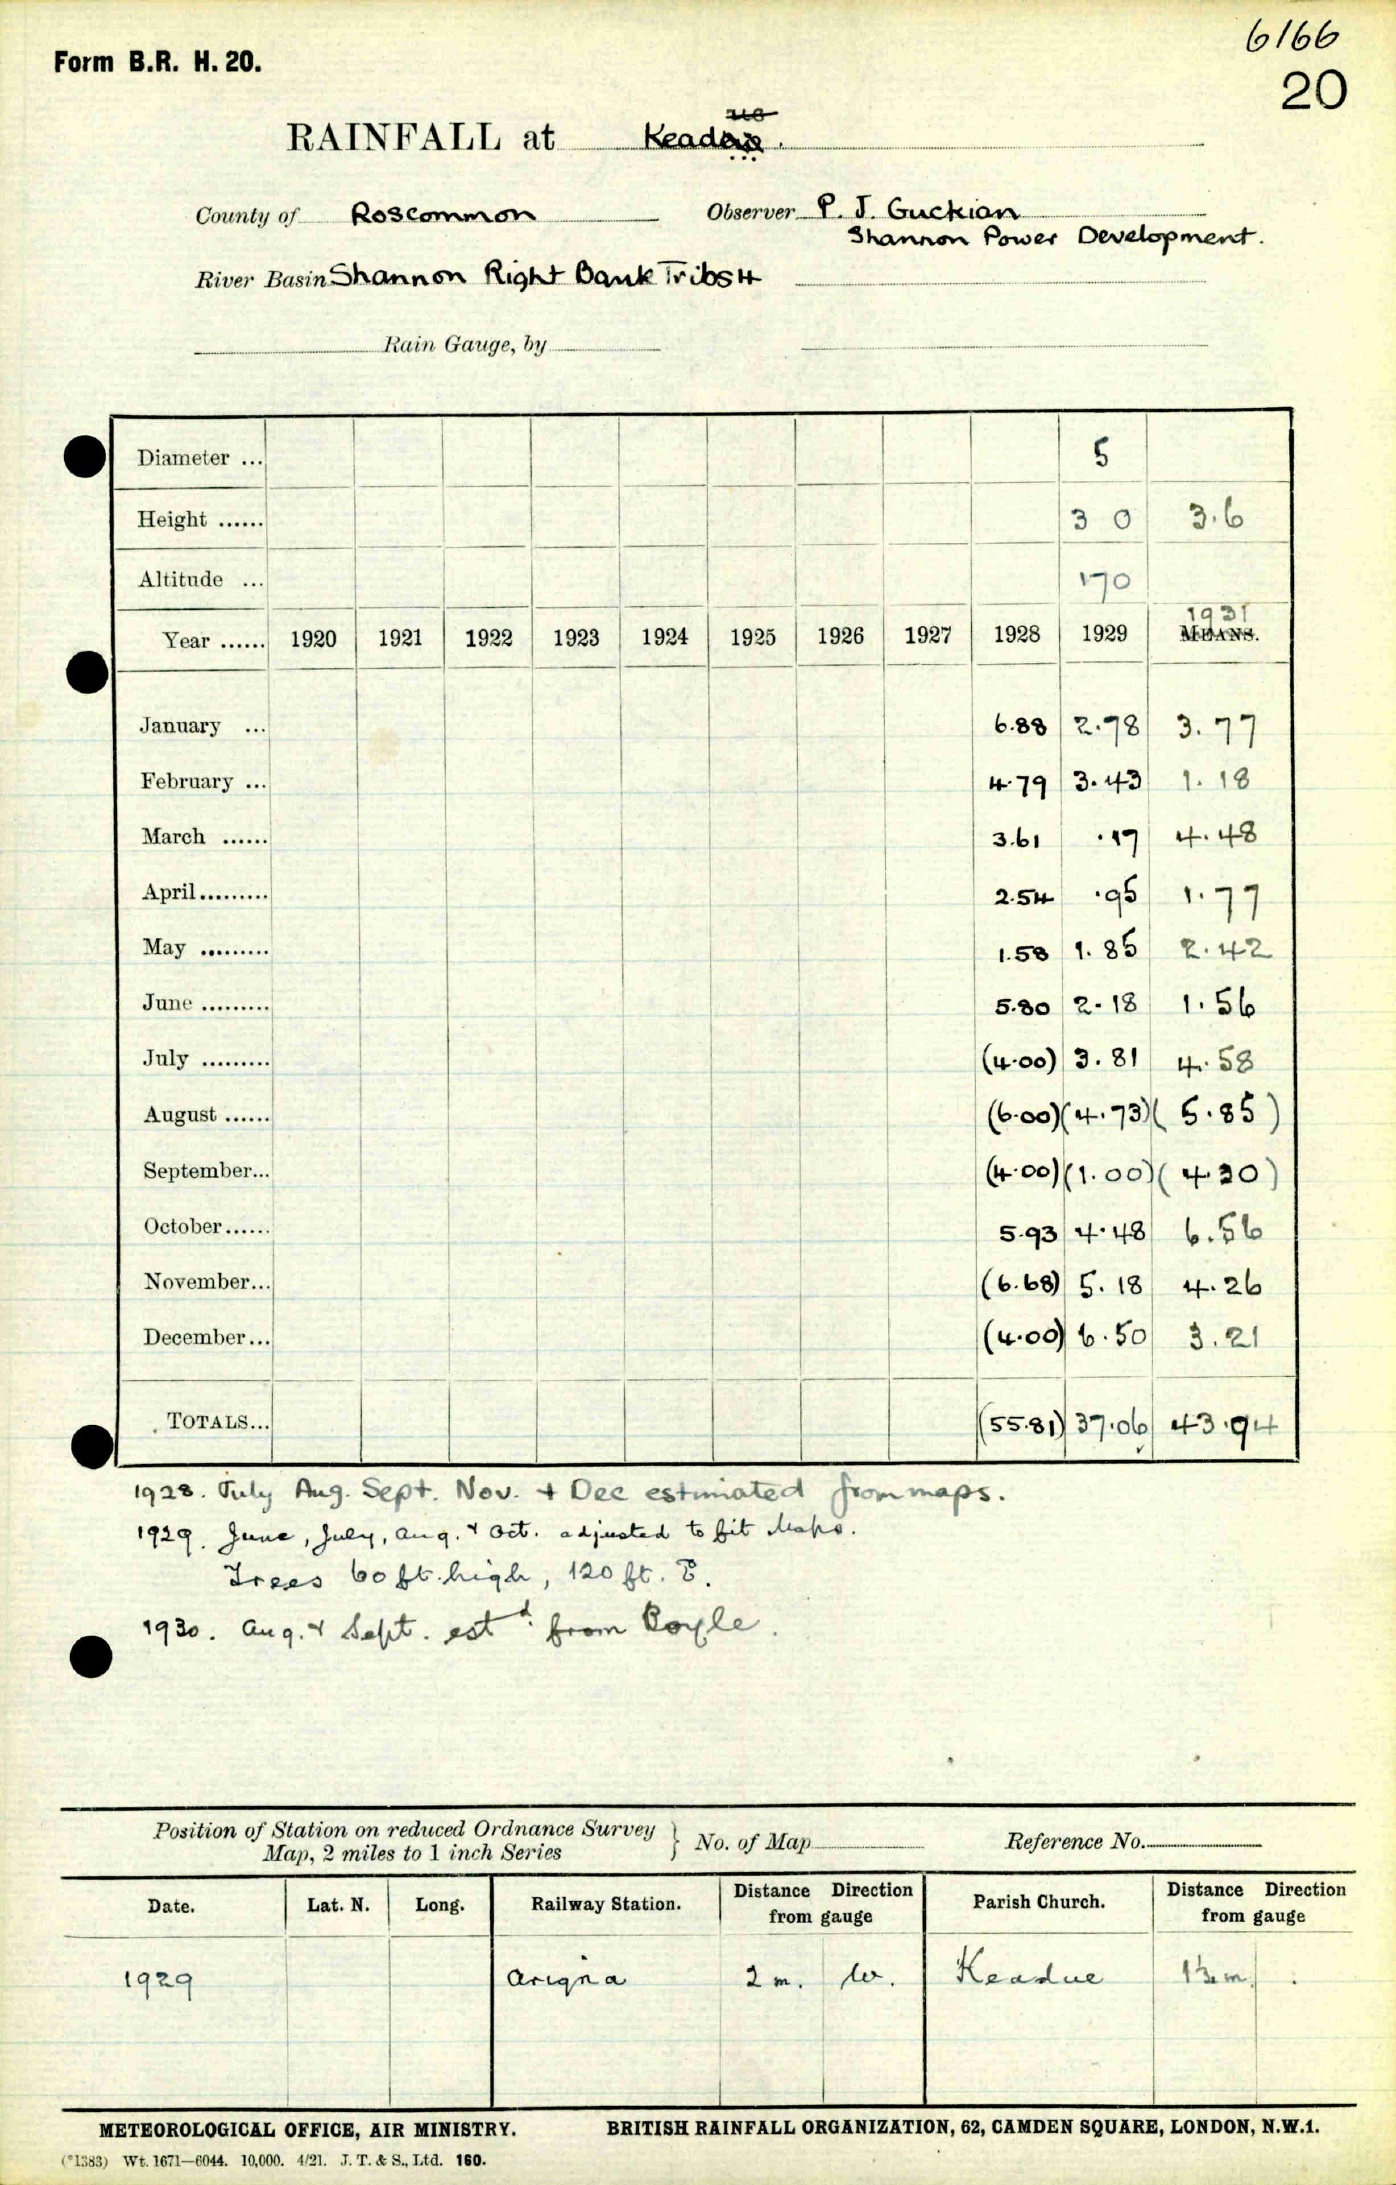 6166
Form B.R. H. 20.
20
RAINFALL at Keadue.
County of Roscommon Observer P. J. Guckian
Shannon Power Development.
River Basin Shannon Right Bank Tribs 4
Rain Gauge, by
Diameter ... 5
Height ...... 3 0 3.6
Altitude ... 170
1931
Year ...... 1920 1921 1922 1923 1924 1925 1926 1927 1928 1929 MEANS.
January ... 6.88 2.78 3.77
February ... 4.79 3.43 1.18
March ...... 3.61 .17 4.48
April......... 2.54 .95 1.77
May ......... 1.58 1.85 2.42
June ......... 5.80 2.18 1.56
July ......... (4.00) 3.81 4.58
August ...... (6.00) (4.73) (5.85)
September... (4.00) (1.00) (4.30)
October...... 5.93 4.48 6.56
November... (6.68) 5.18 4.26
December... (4.00) 6.50 3.21
TOTALS... (55.81) 37.06 43.94
1928. July Aug. Sept. Nov. + Dec estimated from maps.
1929. June, July, Aug. + Oct. adjusted to fit Maps.
Trees 60 ft. high, 120 ft. E.
1930. Aug. + Sept. est d. from Boyle.
Position of Station on reduced Ordnance Survey
Map, 2 miles to 1 inch Series } No. of Map Reference No.
Date. Lat. N. Long. Railway Station. Distance Direction from gauge Parish Church. Distance Direction from gauge
1929 Arigna 2 m. W. Keadue
METEOROLOGICAL OFFICE, AIR MINISTRY. BRITISH RAINFALL ORGANIZATION, 62, CAMDEN SQUARE, LONDON, N.W.1.
(*1383) Wt. 1671—6044. 10,000. 4/21. J. T. & S., Ltd. 160.